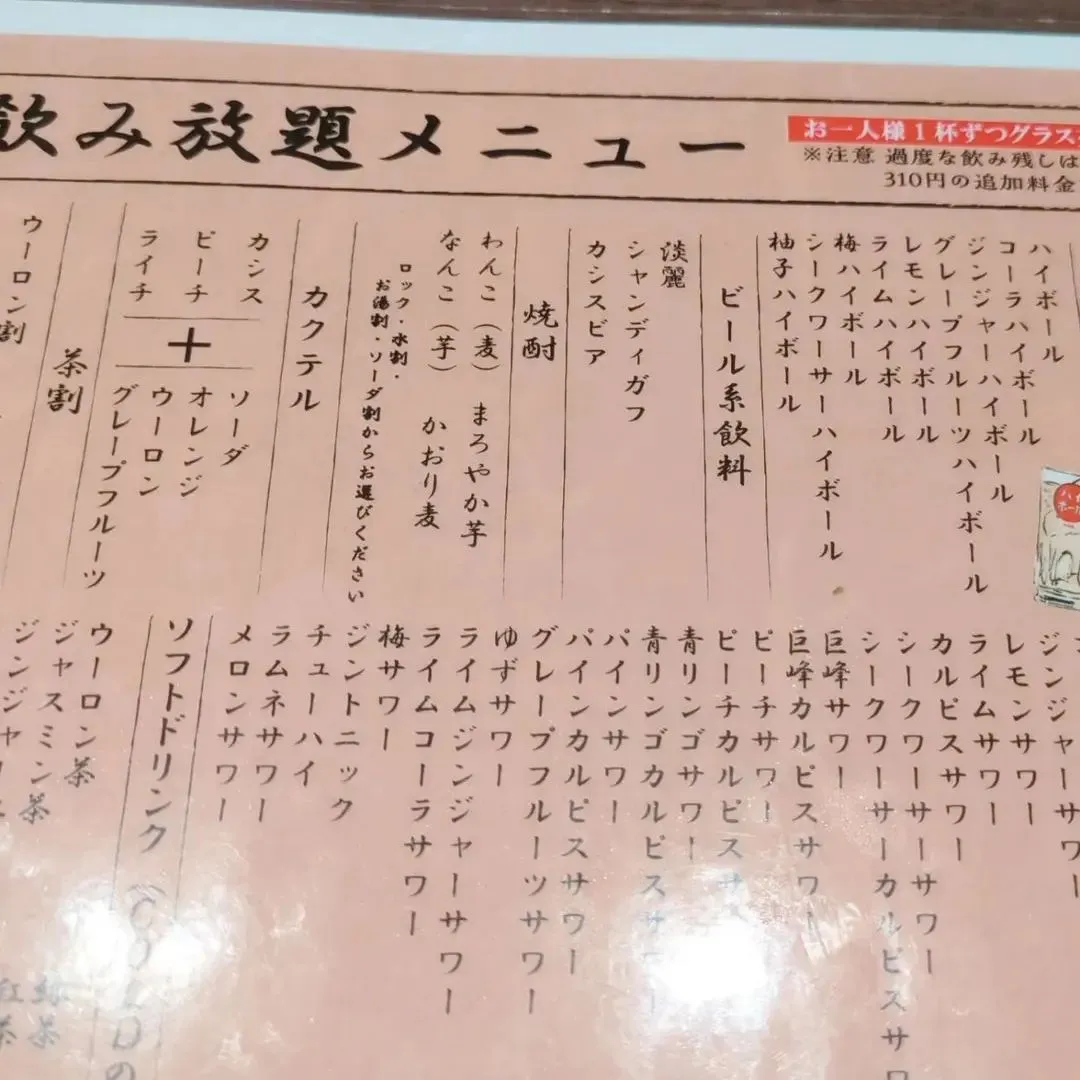 飲み放題メニュー
お一人様1杯ずつグラス
※注意 過度な飲み残しは
310円の追加料金
ハイボール
コーラハイボール
ジンジャーハイボール
グレープフルーツハイボール
レモンハイボール
ライムハイボール
梅ハイボール
シークワーサーハイボール
柚子ハイボール
ビール系飲料
淡麗
シャンディガフ
カシスビア
焼酎
わんこ(麦) まろやか芋
なんこ(芋) かおり麦
ロック・水割・
お湯割・ソーダ割からお選びください
カクテル
カシス
ピーチ
ライチ
+
ソーダ
オレンジ
ウーロン
グレープフルーツ
茶割
ウーロン割
ジンジャーサワー
レモンサワー
ライムサワー
カルピスサワー
シークワーサーサワー
シークワーサーカルピスサワ
巨峰サワー
巨峰カルピスサワー
ピーチサワー
ピーチカルピスサ
青リンゴサワー
青リンゴカルピスサワー
パインサワー
パインカルピスサワー
グレープフルーツサワー
ゆずサワー
ライムジンジャーサワー
ライムコーラサワー
梅サワー
ジントニック
チューハイ
ラムネサワー
メロンサワー
ソフトドリンク(COLDの
ウーロン茶
ジャスミン茶
ジンジャー
緑茶
紅茶